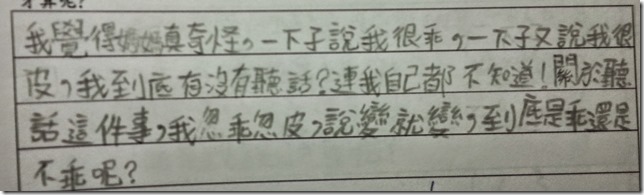 才算呢?
我覺得媽媽真奇怪,一下子說我很乖,一下子又說我很
皮,我到底有沒有聽話?連我自己都不知道!關於聽
話這件事,我忽乖忽皮,說變就變,到底是乖還是
不乖呢?